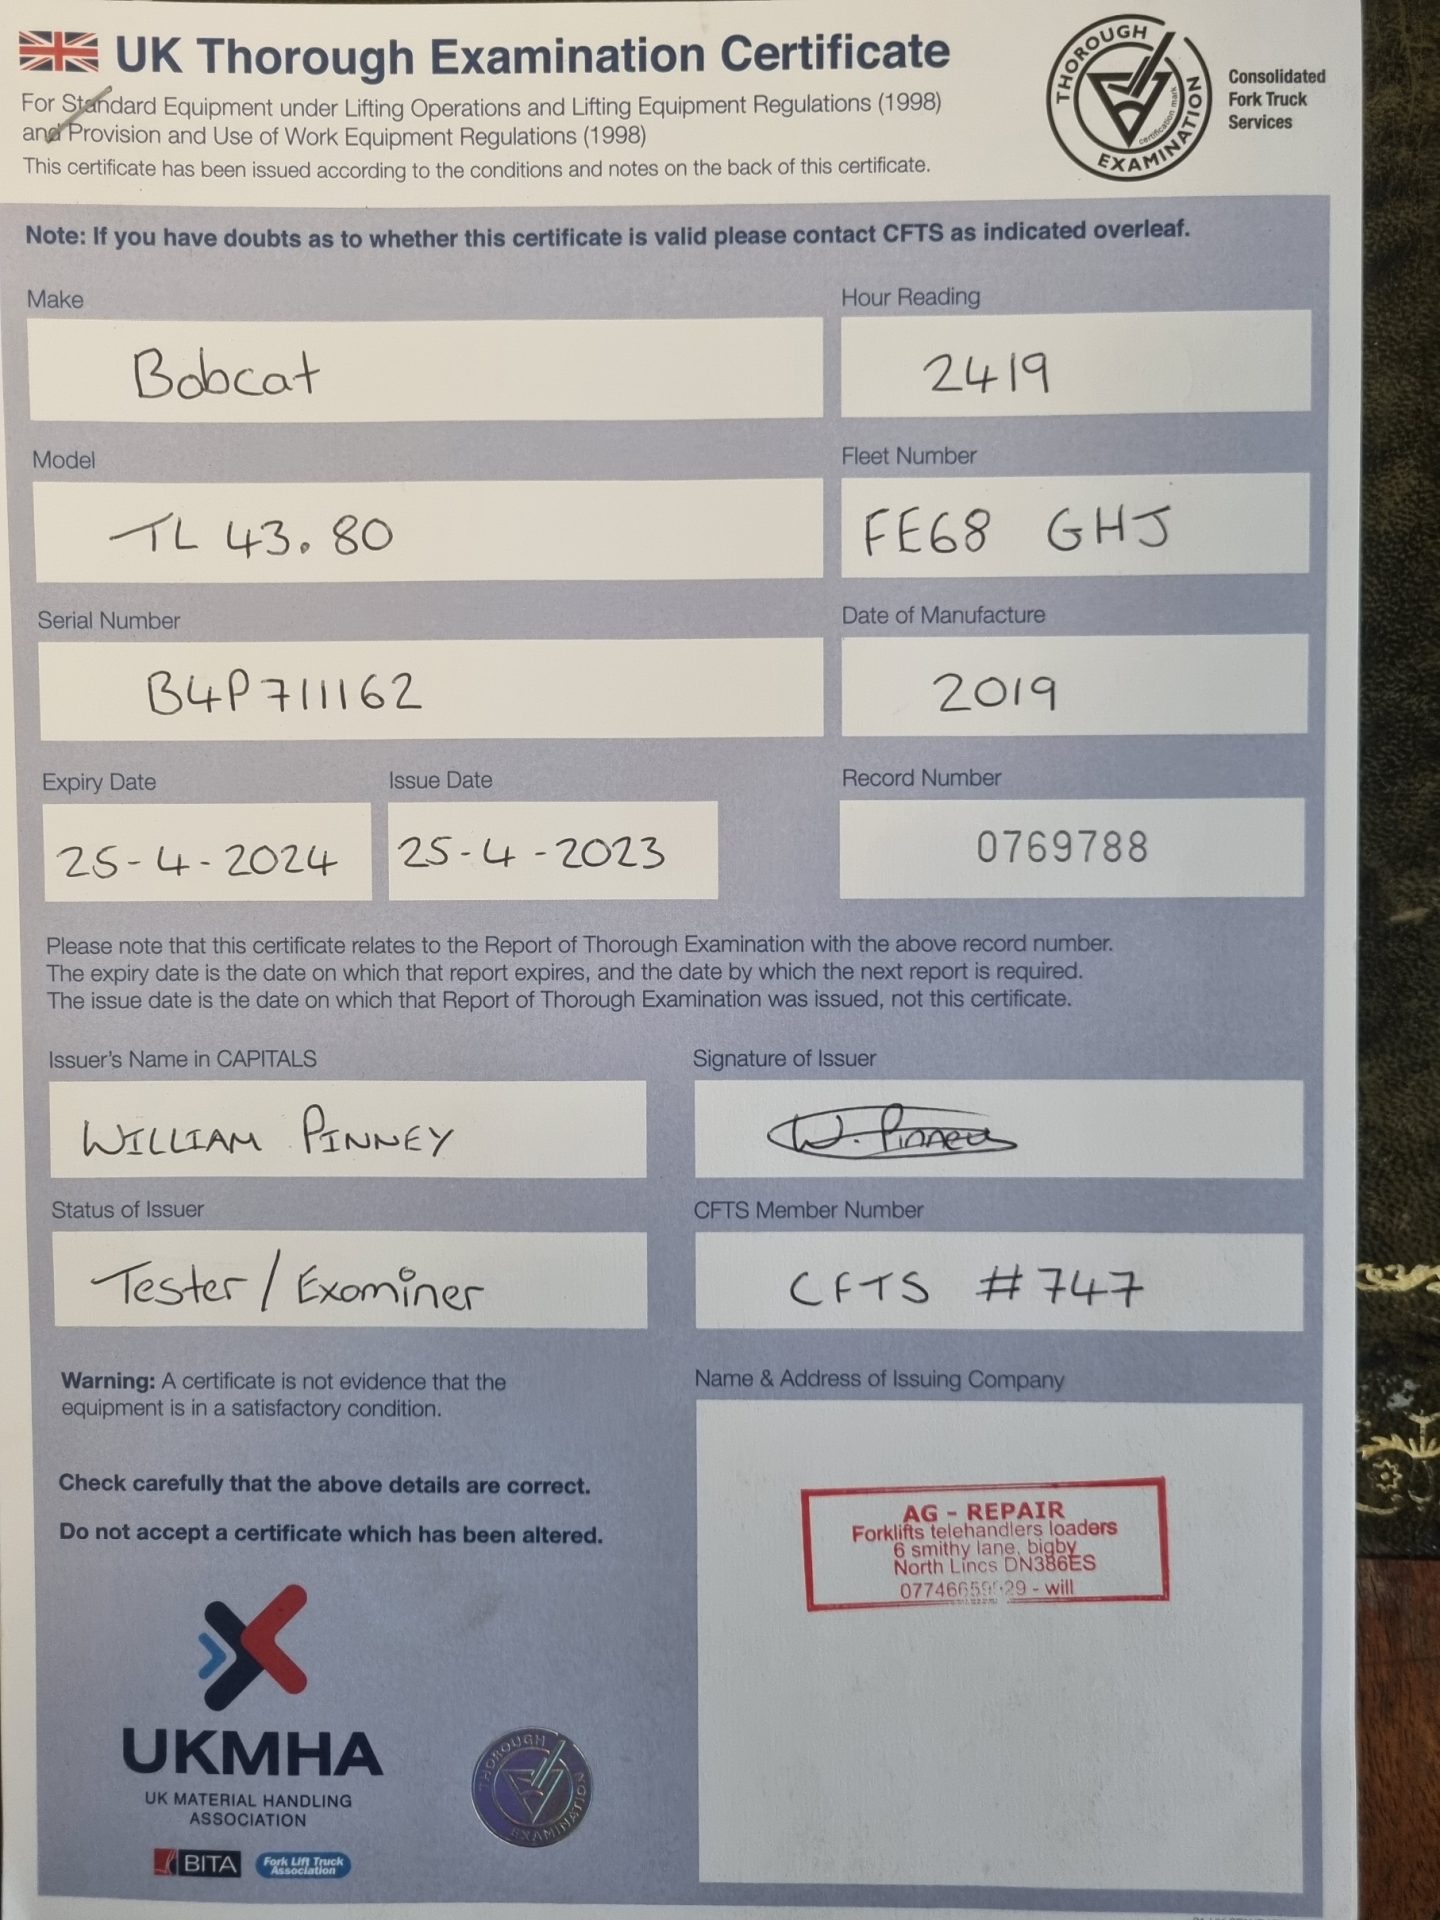 UK Thorough Examination Certificate
For Standard Equipment under Lifting Operations and Lifting Equipment Regulations (1998)
and Provision and Use of Work Equipment Regulations (1998)
This certificate has been issued according to the conditions and notes on the back of this certificate.
THOROUGH EXAMINATION
certification mark
Consolidated
Fork Truck
Services
Note: If you have doubts as to whether this certificate is valid please contact CFTS as indicated overleaf.
Make
Hour Reading
Bobcat
2419
Model
Fleet Number
TL 43.80
FE68 GHJ
Serial Number
Date of Manufacture
B4P711162
2019
Expiry Date
Issue Date
Record Number
25-4-2024
25-4-2023
0769788
Please note that this certificate relates to the Report of Thorough Examination with the above record number.
The expiry date is the date on which that report expires, and the date by which the next report is required.
The issue date is the date on which that Report of Thorough Examination was issued, not this certificate.
Issuer's Name in CAPITALS
Signature of Issuer
WILLIAM PINNEY
W. Pinney
Status of Issuer
CFTS Member Number
Tester / Examiner
CFTS #747
Warning: A certificate is not evidence that the
equipment is in a satisfactory condition.
Check carefully that the above details are correct.
Do not accept a certificate which has been altered.
Name & Address of Issuing Company
AG - REPAIR
Forklifts telehandlers loaders
6 smithy lane, bigby
North Lincs DN386ES
- will
UKMHA
UK MATERIAL HANDLING
ASSOCIATION
BITA
Fork Lift Truck
Association
THOROUGH EXAMINATION